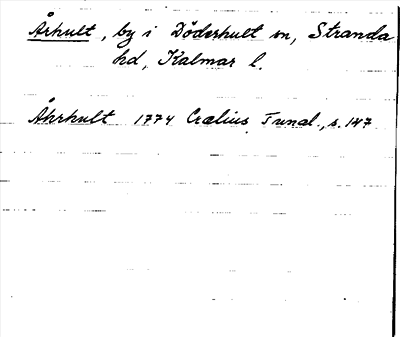 Århult, by i Döderhult sn, Stranda
hd, Kalmar l.
Åhrhult 1774 Crælius Tunal., s. 147